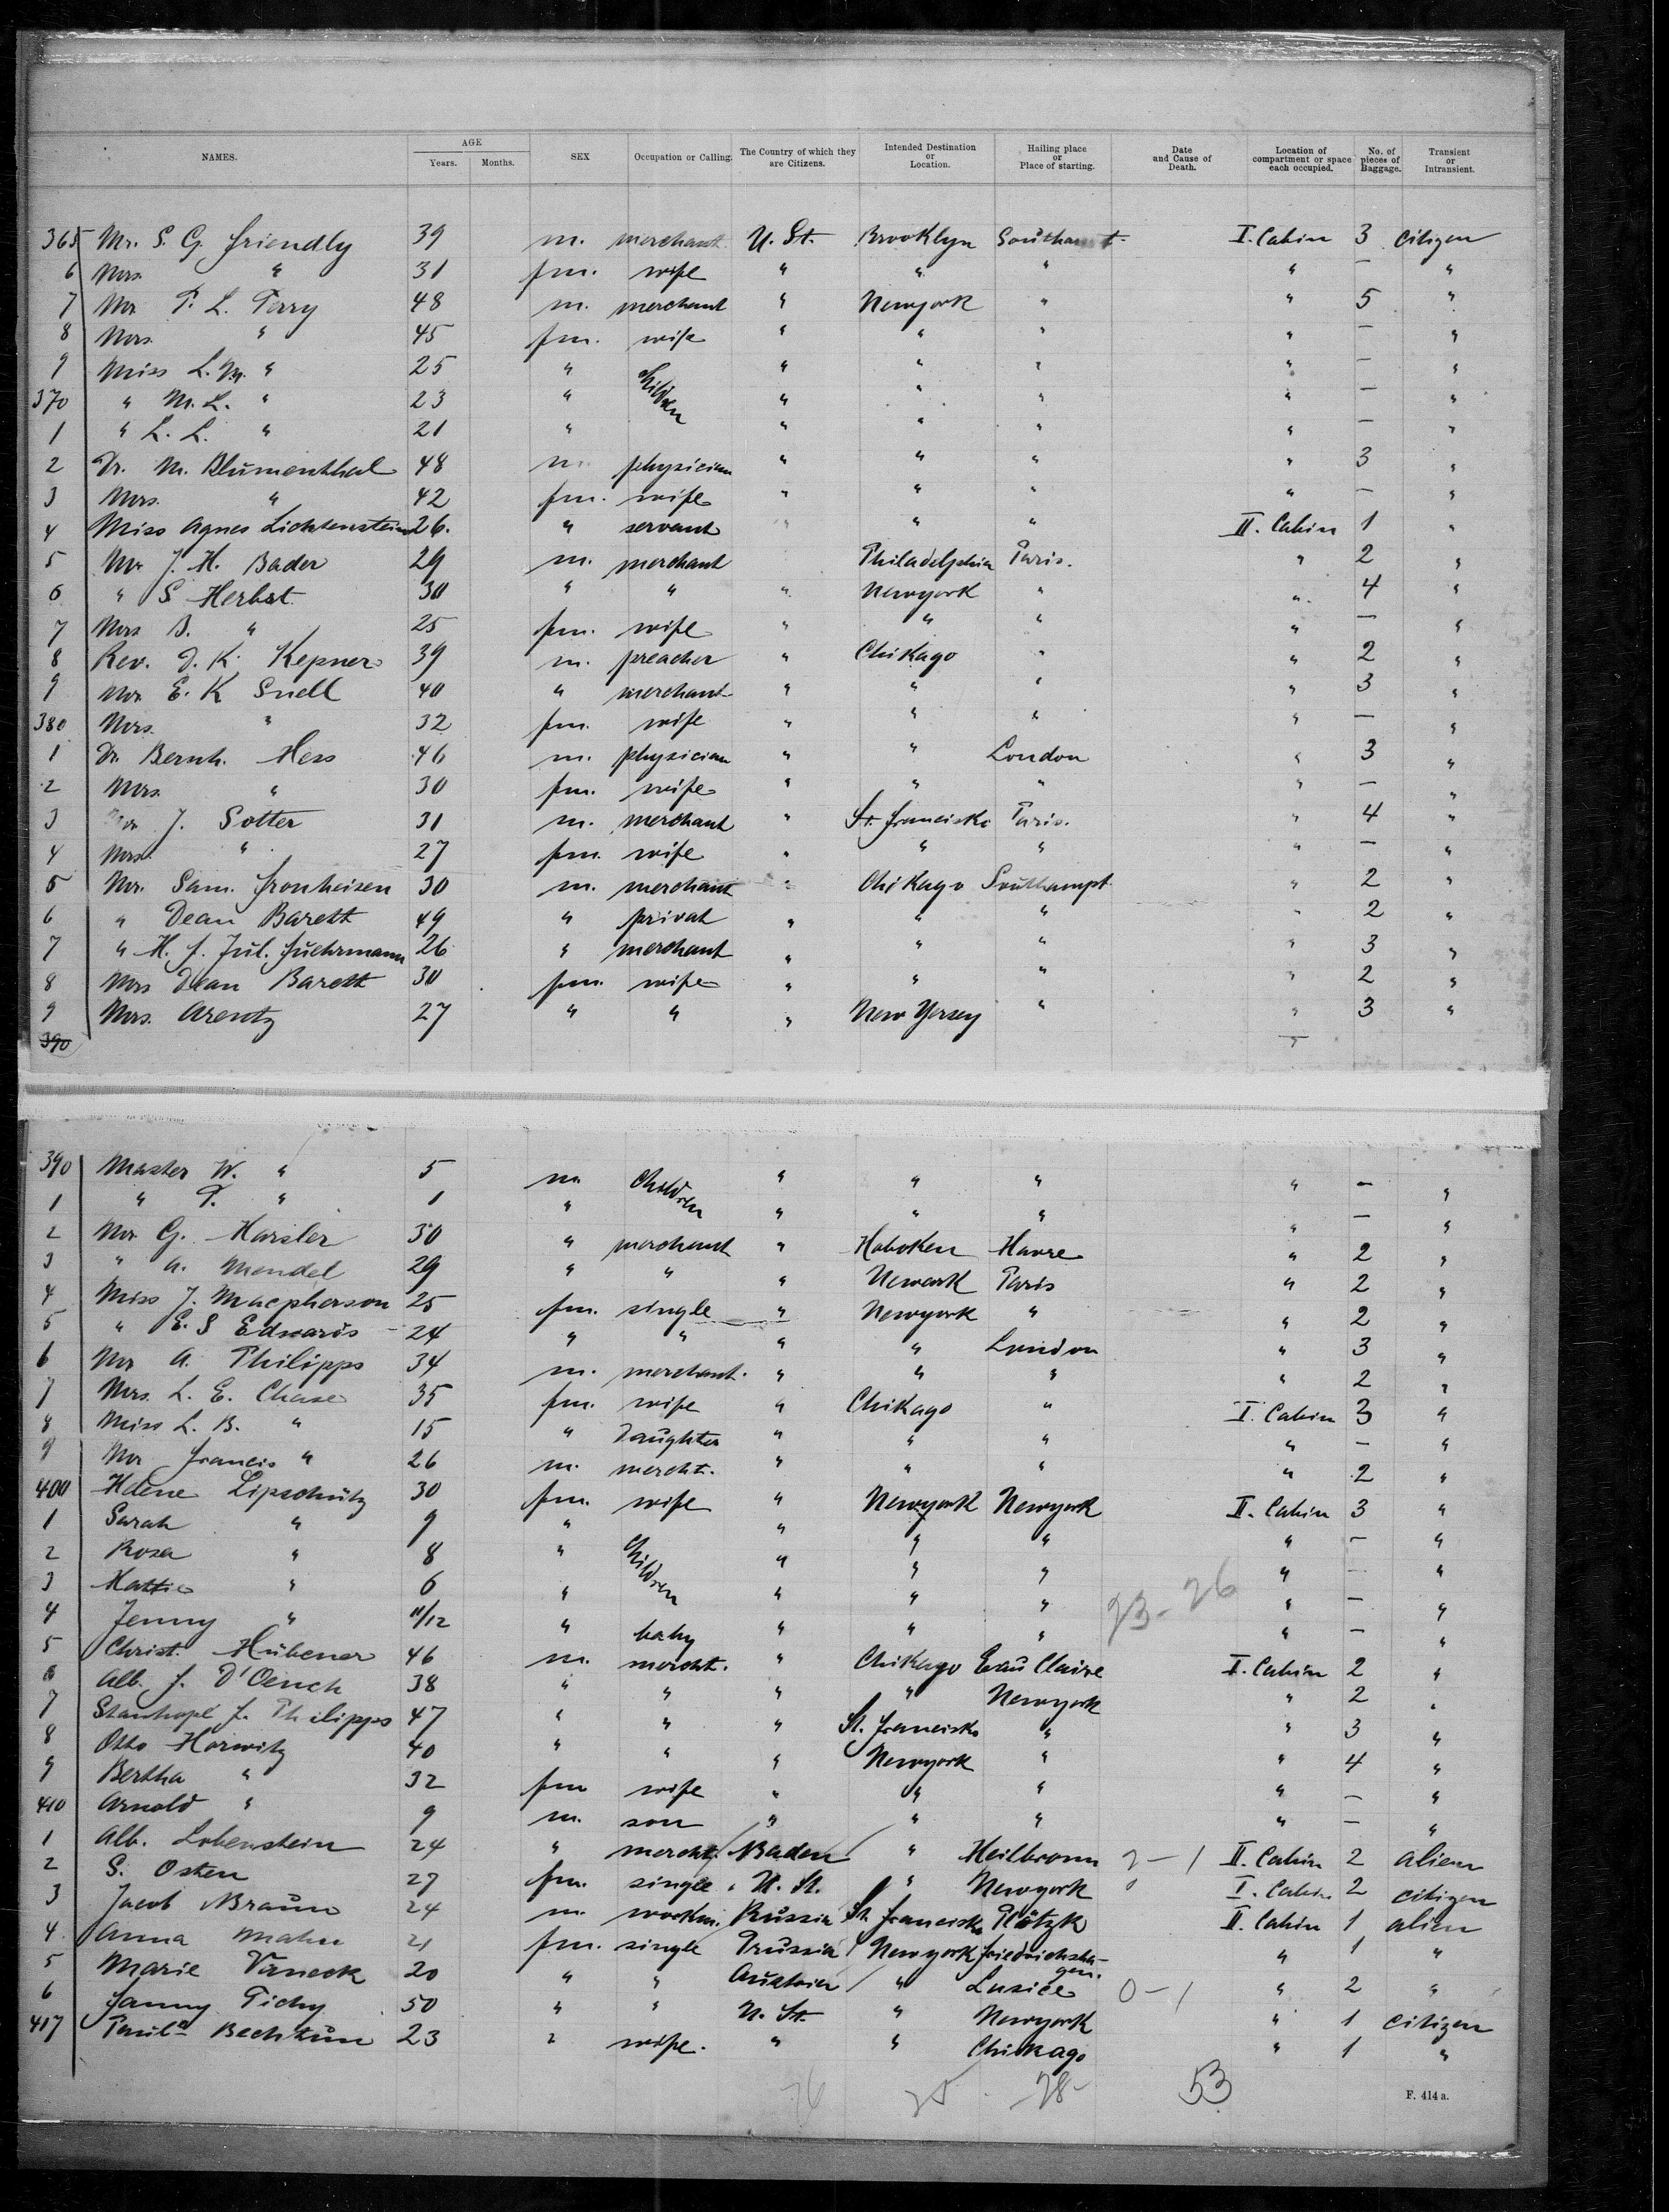 NAMES. AGE Years. Months. SEX Occupation or Calling. The Country of which they are Citizens. Intended Destination or Location. Hailing place or Place of starting. Date and Cause of Death. Location of compartment or space each occupied. No. of pieces of Baggage. Transient or Intransient.
365 Mr. S. G. Friendly 39 m. merchant U. St. Brooklyn I. Cabin 3 citizen
6 Mrs. " 31 fm. wife " " " " — "
7 Mr P. L. Perry 48 m. merchant " Newyork " " 5 "
8 Mrs. " 45 fm. wife " " " " — "
9 Miss L. M. " 25 " children " " " " — "
370 " M. L. " 23 " " " " " — "
1 " L. L. " 21 " " " " " — "
2 Dr. M. Blumenthal 48 m physician " " " " 3 "
3 Mrs. " 42 fm. wife " " " " — "
4 Miss Agnes Lichtenstein 26. " servant " " " II. Cabin 1 "
5 Mr J. H. Bader 29 m. merchant Philadelphia Paris. " 2 "
6 " S Herbst 30 " " " Newyork " " 4 "
7 Mrs B. " 25 fm. wife " " " " — "
8 Rev. D. K. Kepner 39 m. preacher " Chikago " " 2 "
9 Mr E. K Snell 40 " merchant " " " " 3 "
380 Mrs. " 32 fm. wife " " " " — "
1 Dr. Bernh. Hess 46 m. physician " " London " 3 "
2 Mrs. " 30 fm. wife " " " " — "
3 Mr J. Sotter 31 m. merchant " St. Francisko Paris. " 4 "
4 Mrs. " 27 fm. wife " " " " — "
5 Mr. Sam. Fronheisen 30 m. merchant " Chikago Southampt " 2 "
6 " Dean Barett 49 " privat " " " " 2 "
7 " H. J. Jul. Fuehrmann 26 " merchant " " " " 3 "
8 Mrs Dean Barett 30 fm. wife " " " " 2 "
9 Mrs. Arentz 27 " " " New Yersey " " 3 "
390
390 Master W. " 5 m. children " " " " — "
1 " P. " 1 " " " " " — "
2 Mr G. Harsler 30 " merchant " Hoboken Havre " 2 "
3 " A. Mendel 29 " " " Newark Paris " 2 "
4 Miss J. Macpherson 25 fm. single " Newyork " " 2 "
5 " E. S Edwards 24 " " " " London " 3 "
6 Mr A. Philipps 34 m. merchant. " " " " 2 "
7 Mrs. L. E. Chase 35 fm. wife " Chikago " I. Cabin 3 "
8 Miss L. B. " 15 " Daughter " " " " — "
9 Mr Francis " 26 m. mercht. " " " " 2 "
400 Helene Lipschütz 30 fm. wife " Newyork Newyork II. Cabin 3 "
1 Sarah " 9 " " " " " — "
2 Rosa " 8 " children " " " " — "
3 Hattie " 6 " " " " 23-26 " — "
4 Jenny " 11/12 " baby " " " " — "
5 Christ. Hübener 46 m. mercht. " Chikago Eau Claire I. Cabin 2 "
6 Alb. J. D'Oench 38 " " " " Newyork " 2 "
7 Stanhope J. Philipps 47 " " " St. Francisko " " 3 "
8 Otto Horwitz 40 " " " Newyork " " 4 "
9 Bertha " 32 fm wife " " " " — "
410 Arnold " 9 m. son " " " " — "
1 Alb. Lobenstein 24 " mercht. Baden " Heilbronn 2-1 II. Cabin 2 alien
2 S. Osten 27 fm. single U. St. " Newyork I. Cabin 2 citizen
3 Jacob Braun 24 m workm. Russia St. Francisko Plötzk II. Cabin 1 alien
4 Anna Mahn 21 fm. single Prussia Newyork Friedrichshagen. " 1 "
5 Marie Vaneck 20 " " Austria " Lusice 0-1 " 2 "
6 Fanny Pichy 50 " " U. St. " Newyork " 1 citizen
417 Paula Bechtun 23 " wife. " " Chikago " 1 "
28- 53
F. 414 a.